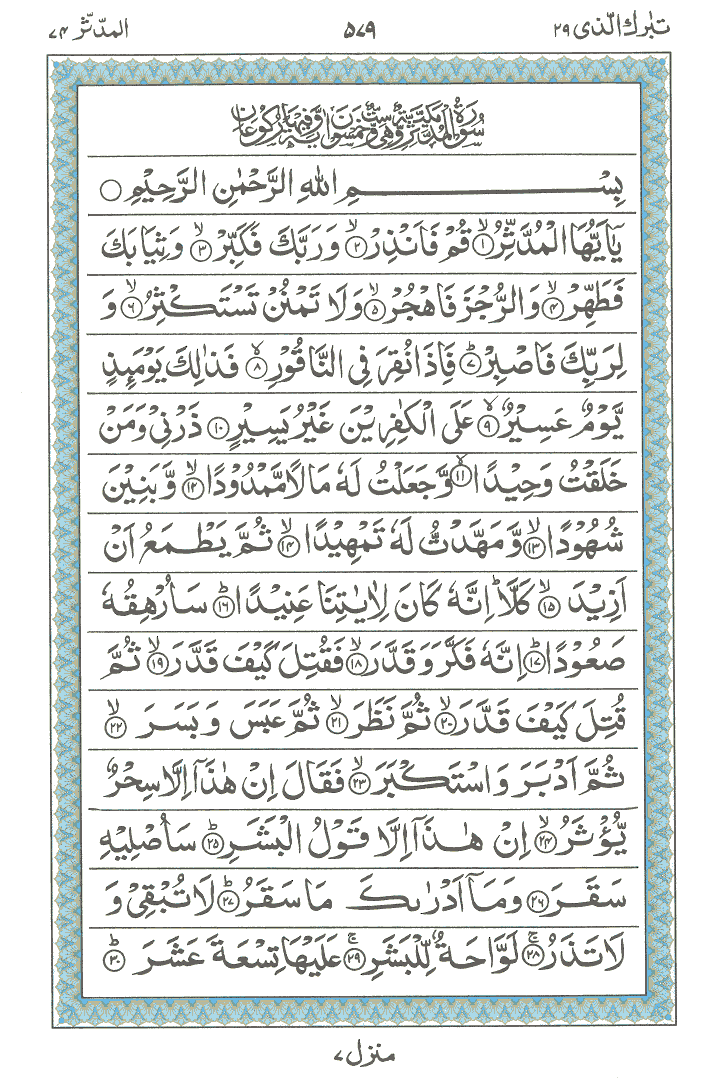 تبٰرك الّذى ٢٩
٥٧٩
المدّثّر ٧٤
سُوْرَةُ الْمُدَّثِّرِ مَكِّيَّةٌ وَّهِيَ سِتٌّ وَّخَمْسُوْنَ اٰيَةً وَّفِيْهَا رُكُوْعَانِ
بِسْمِ اللهِ الرَّحْمٰنِ الرَّحِيْمِ ○
يٰۤاَيُّهَا الْمُدَّثِّرُۙ﴿١﴾ قُمْ فَاَنْذِرْۙ﴿٢﴾ وَرَبَّكَ فَكَبِّرْۙ﴿٣﴾ وَثِيَابَكَ
فَطَهِّرْۙ﴿٤﴾ وَالرُّجْزَ فَاهْجُرْۙ﴿٥﴾ وَلَا تَمْنُنْ تَسْتَكْثِرُۙ﴿٦﴾ وَ
لِرَبِّكَ فَاصْبِرْؕ﴿٧﴾ فَاِذَا نُقِرَ فِى النَّاقُوْرِۙ﴿٨﴾ فَذٰلِكَ يَوْمَئِذٍ
يَّوْمٌ عَسِيْرٌۙ﴿٩﴾ عَلَى الْكٰفِرِيْنَ غَيْرُ يَسِيْرٍ﴿١٠﴾ ذَرْنِيْ وَمَنْ
خَلَقْتُ وَحِيْدًاۙ﴿١١﴾ وَّجَعَلْتُ لَهٗ مَالًا مَّمْدُوْدًاۙ﴿١٢﴾ وَّبَنِيْنَ
شُهُوْدًاۙ﴿١٣﴾ وَّمَهَّدْتُّ لَهٗ تَمْهِيْدًاۙ﴿١٤﴾ ثُمَّ يَطْمَعُ اَنْ
اَزِيْدَۙ﴿١٥﴾ كَلَّاؕ اِنَّهٗ كَانَ لِاٰيٰتِنَا عَنِيْدًاؕ﴿١٦﴾ سَاُرْهِقُهٗ
صَعُوْدًاؕ﴿١٧﴾ اِنَّهٗ فَكَّرَ وَقَدَّرَۙ﴿١٨﴾ فَقُتِلَ كَيْفَ قَدَّرَۙ﴿١٩﴾ ثُمَّ
قُتِلَ كَيْفَ قَدَّرَۙ﴿٢٠﴾ ثُمَّ نَظَرَۙ﴿٢١﴾ ثُمَّ عَبَسَ وَبَسَرَۙ﴿٢٢﴾
ثُمَّ اَدْبَرَ وَاسْتَكْبَرَۙ﴿٢٣﴾ فَقَالَ اِنْ هٰذَاۤ اِلَّا سِحْرٌ
يُّؤْثَرُۙ﴿٢٤﴾ اِنْ هٰذَاۤ اِلَّا قَوْلُ الْبَشَرِؕ﴿٢٥﴾ سَاُصْلِيْهِ
سَقَرَ﴿٢٦﴾ وَمَاۤ اَدْرٰىكَ مَا سَقَرُؕ﴿٢٧﴾ لَا تُبْقِيْ وَ
لَا تَذَرُۚ﴿٢٨﴾ لَوَّاحَةٌ لِّلْبَشَرِۚ﴿٢٩﴾ عَلَيْهَا تِسْعَةَ عَشَرَؕ﴿٣٠﴾
منزل ٧